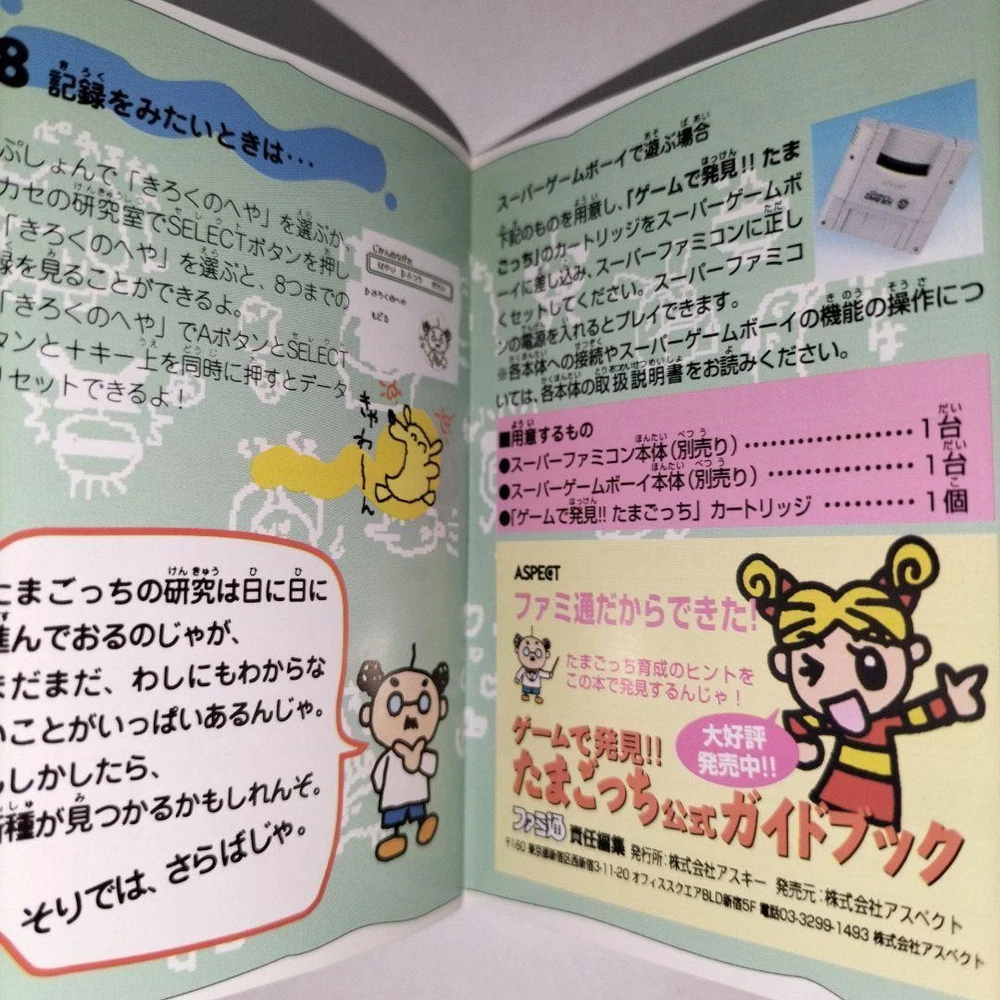 8 記録をみたいときは…
ぷしょんで「きろくのへや」を選ぶか、
カセの研究室でSELECTボタンを押し
「きろくのへや」を選ぶと、8つまでの
録を見ることができるよ。
「きろくのへや」でAボタンとSELECT
タンと＋キー上を同時に押すとデータ
リセットできるよ！
きろくのへや
もどる
きゃわーーん
たまごっちの研究は日に日に
進んでおるのじゃが、
まだまだ、わしにもわからな
いことがいっぱいあるんじゃ。
もしかしたら、
新種が見つかるかもしれんぞ。
そりでは、さらばじゃ。
スーパーゲームボーイで遊ぶ場合
下記のものを用意し、「ゲームで発見!! たま
ごっち」のカートリッジをスーパーゲームボ
ーイに差し込み、スーパーファミコンに正し
くセットしてください。スーパーファミコ
ンの電源を入れるとプレイできます。
※各本体への接続やスーパーゲームボーイの機能の操作につ
いては、各本体の取扱説明書をお読みください。
■用意するもの
●スーパーファミコン本体（別売り）……………… 1台
●スーパーゲームボーイ本体（別売り）…………… 1台
●「ゲームで発見!! たまごっち」カートリッジ ……… 1個
ASPECT
ファミ通だからできた!
たまごっち育成のヒントを
この本で発見するんじゃ！
大好評
発売中!!
ゲームで発見!!
たまごっち公式ガイドブック
ファミ通 責任編集 発行所：株式会社アスキー 発売元：株式会社アスペクト
〒160 東京都新宿区西新宿3-11-20 オフィススクエアBLD新宿5F 電話03-3299-1493 株式会社アスペクト